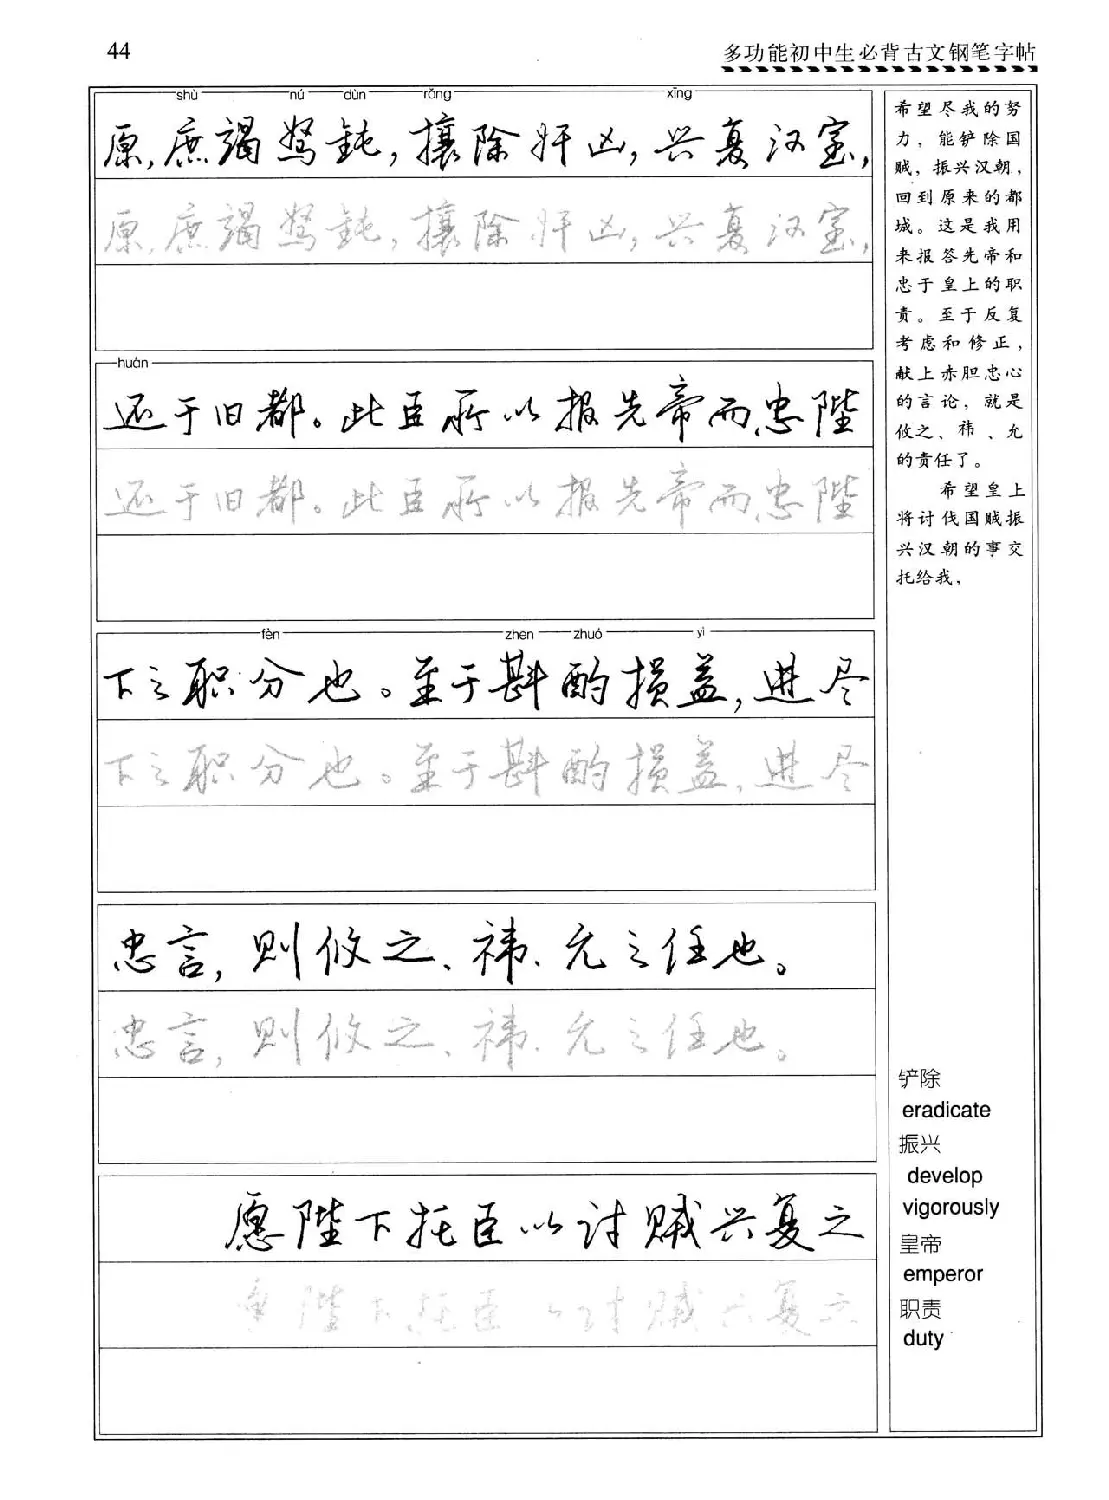 44
多功能初中生必背古文钢笔字帖
shù nú dùn rǎng xīng
原，庶竭驽钝，攘除奸凶，兴复汉室，
原，庶竭驽钝，攘除奸凶，兴复汉室，
huán
还于旧都。此臣所以报先帝而忠陛
还于旧都。此臣所以报先帝而忠陛
fèn zhen zhuó yì
下之职分也。至于斟酌损益，进尽
下之职分也。至于斟酌损益，进尽
忠言，则攸之、祎、允之任也。
忠言，则攸之、祎、允之任也。
愿陛下托臣以讨贼兴复之
愿陛下托臣以讨贼兴复之
希望尽我的努
力，能铲除国
贼，振兴汉朝，
回到原来的都
城。这是我用
来报答先帝和
忠于皇上的职
责。至于反复
考虑和修正，
献上赤胆忠心
的言论，就是
攸之、祎、允
的责任了。
希望皇上
将讨伐国贼振
兴汉朝的事交
托给我，
铲除
eradicate
振兴
develop
vigorously
皇帝
emperor
职责
duty